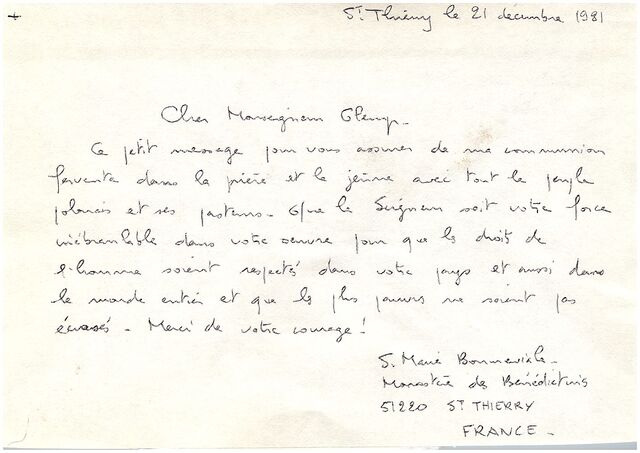 +
St Thierry le 21 décembre 1981
Cher Monseigneur Glemp_
Ce petit message pour vous assurer de ma communion
fervente dans la prière et le jeûne avec tout le peuple
polonais et ses pasteurs_ Que le Seigneur soit votre force
inébranlable dans votre oeuvre pour que les droits de
l'homme soient respectés dans votre pays et aussi dans
le monde entier et que les plus pauvres ne soient pas
écrasés_ Merci de votre courage!
S. Marie Bonnevialle_
Monastère des Bénédictines
51220 ST THIERRY
FRANCE_